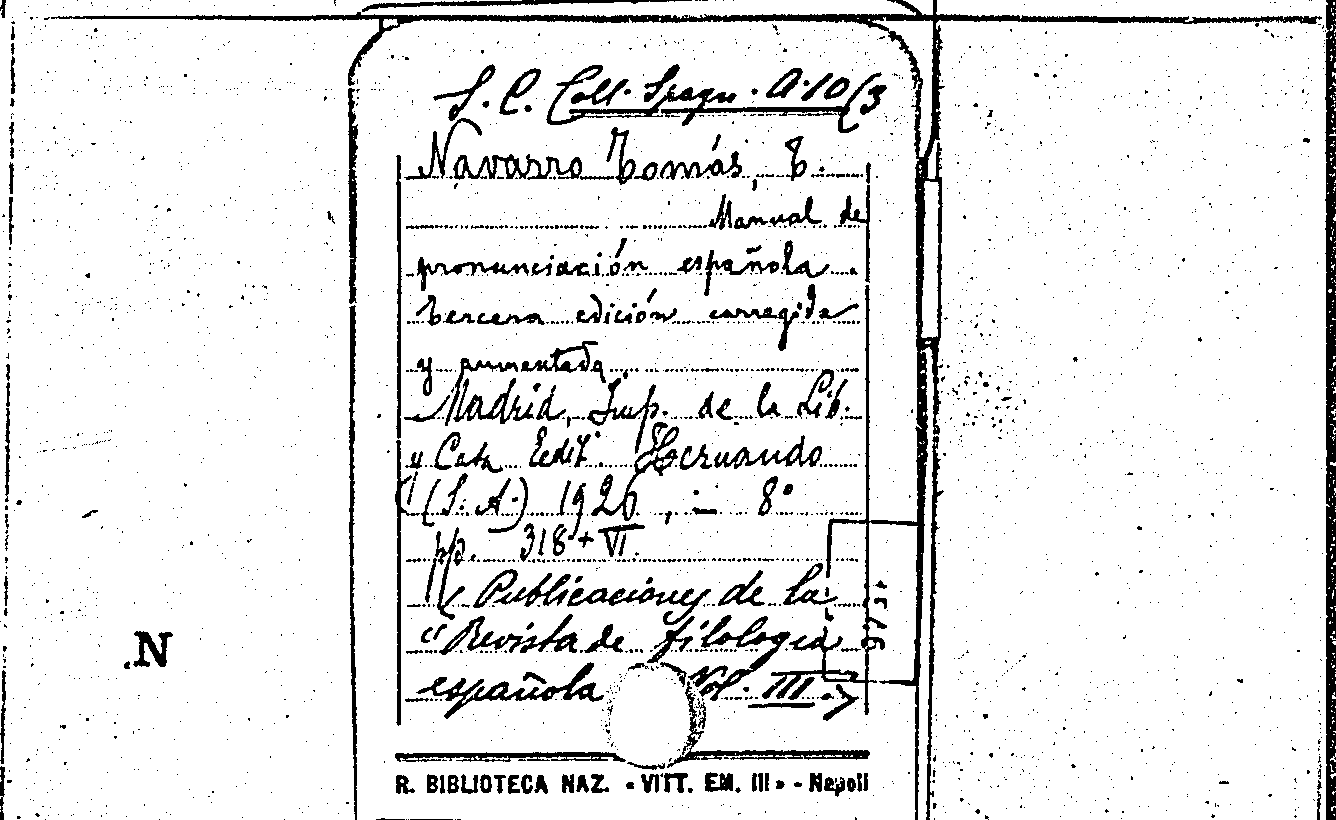 S. C. Coll. Spagn. A. 10/3
Navarro Tomás, T.
Manual de
pronunciación española.
Tercera edición corregida
y aumentada.
Madrid, Imp. de la Lib.
y Casa Edit. Hernando
(S. A.) 1926, - 8°
pp. 318 + VI.
( Publicaciones de la
"Revista de filología
española Vol. III.)
N
R. BIBLIOTECA NAZ. « VITT. EM. III » - Napoli